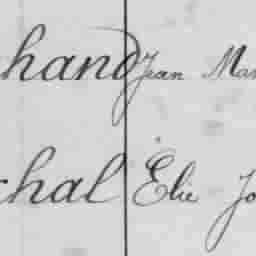 hand Jean Mar
chal Elie Jo